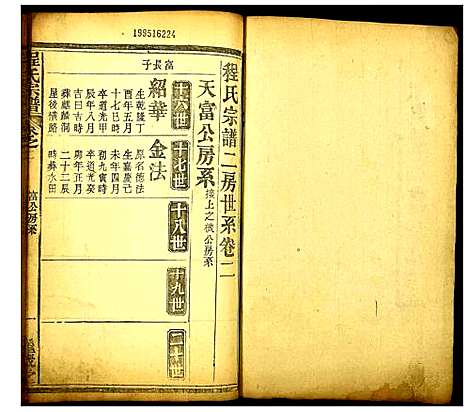 199516224
程氏宗譜二房世系卷二
天富公房系
接上之機公房系
十六世
十七世
十八世
十九世
二十世
富長子
紹華
生乾隆丁
酉年五月
十七巳時
卒道光甲
辰年八月
吉日吉時
葬麒麟洞
屋後橫路
金法
原名德法
生嘉慶己
未年四月
初九寅時
卒道光癸
卯年正月
二十三辰
時葬水田
程氏宗譜
卷之二
富公房系
一